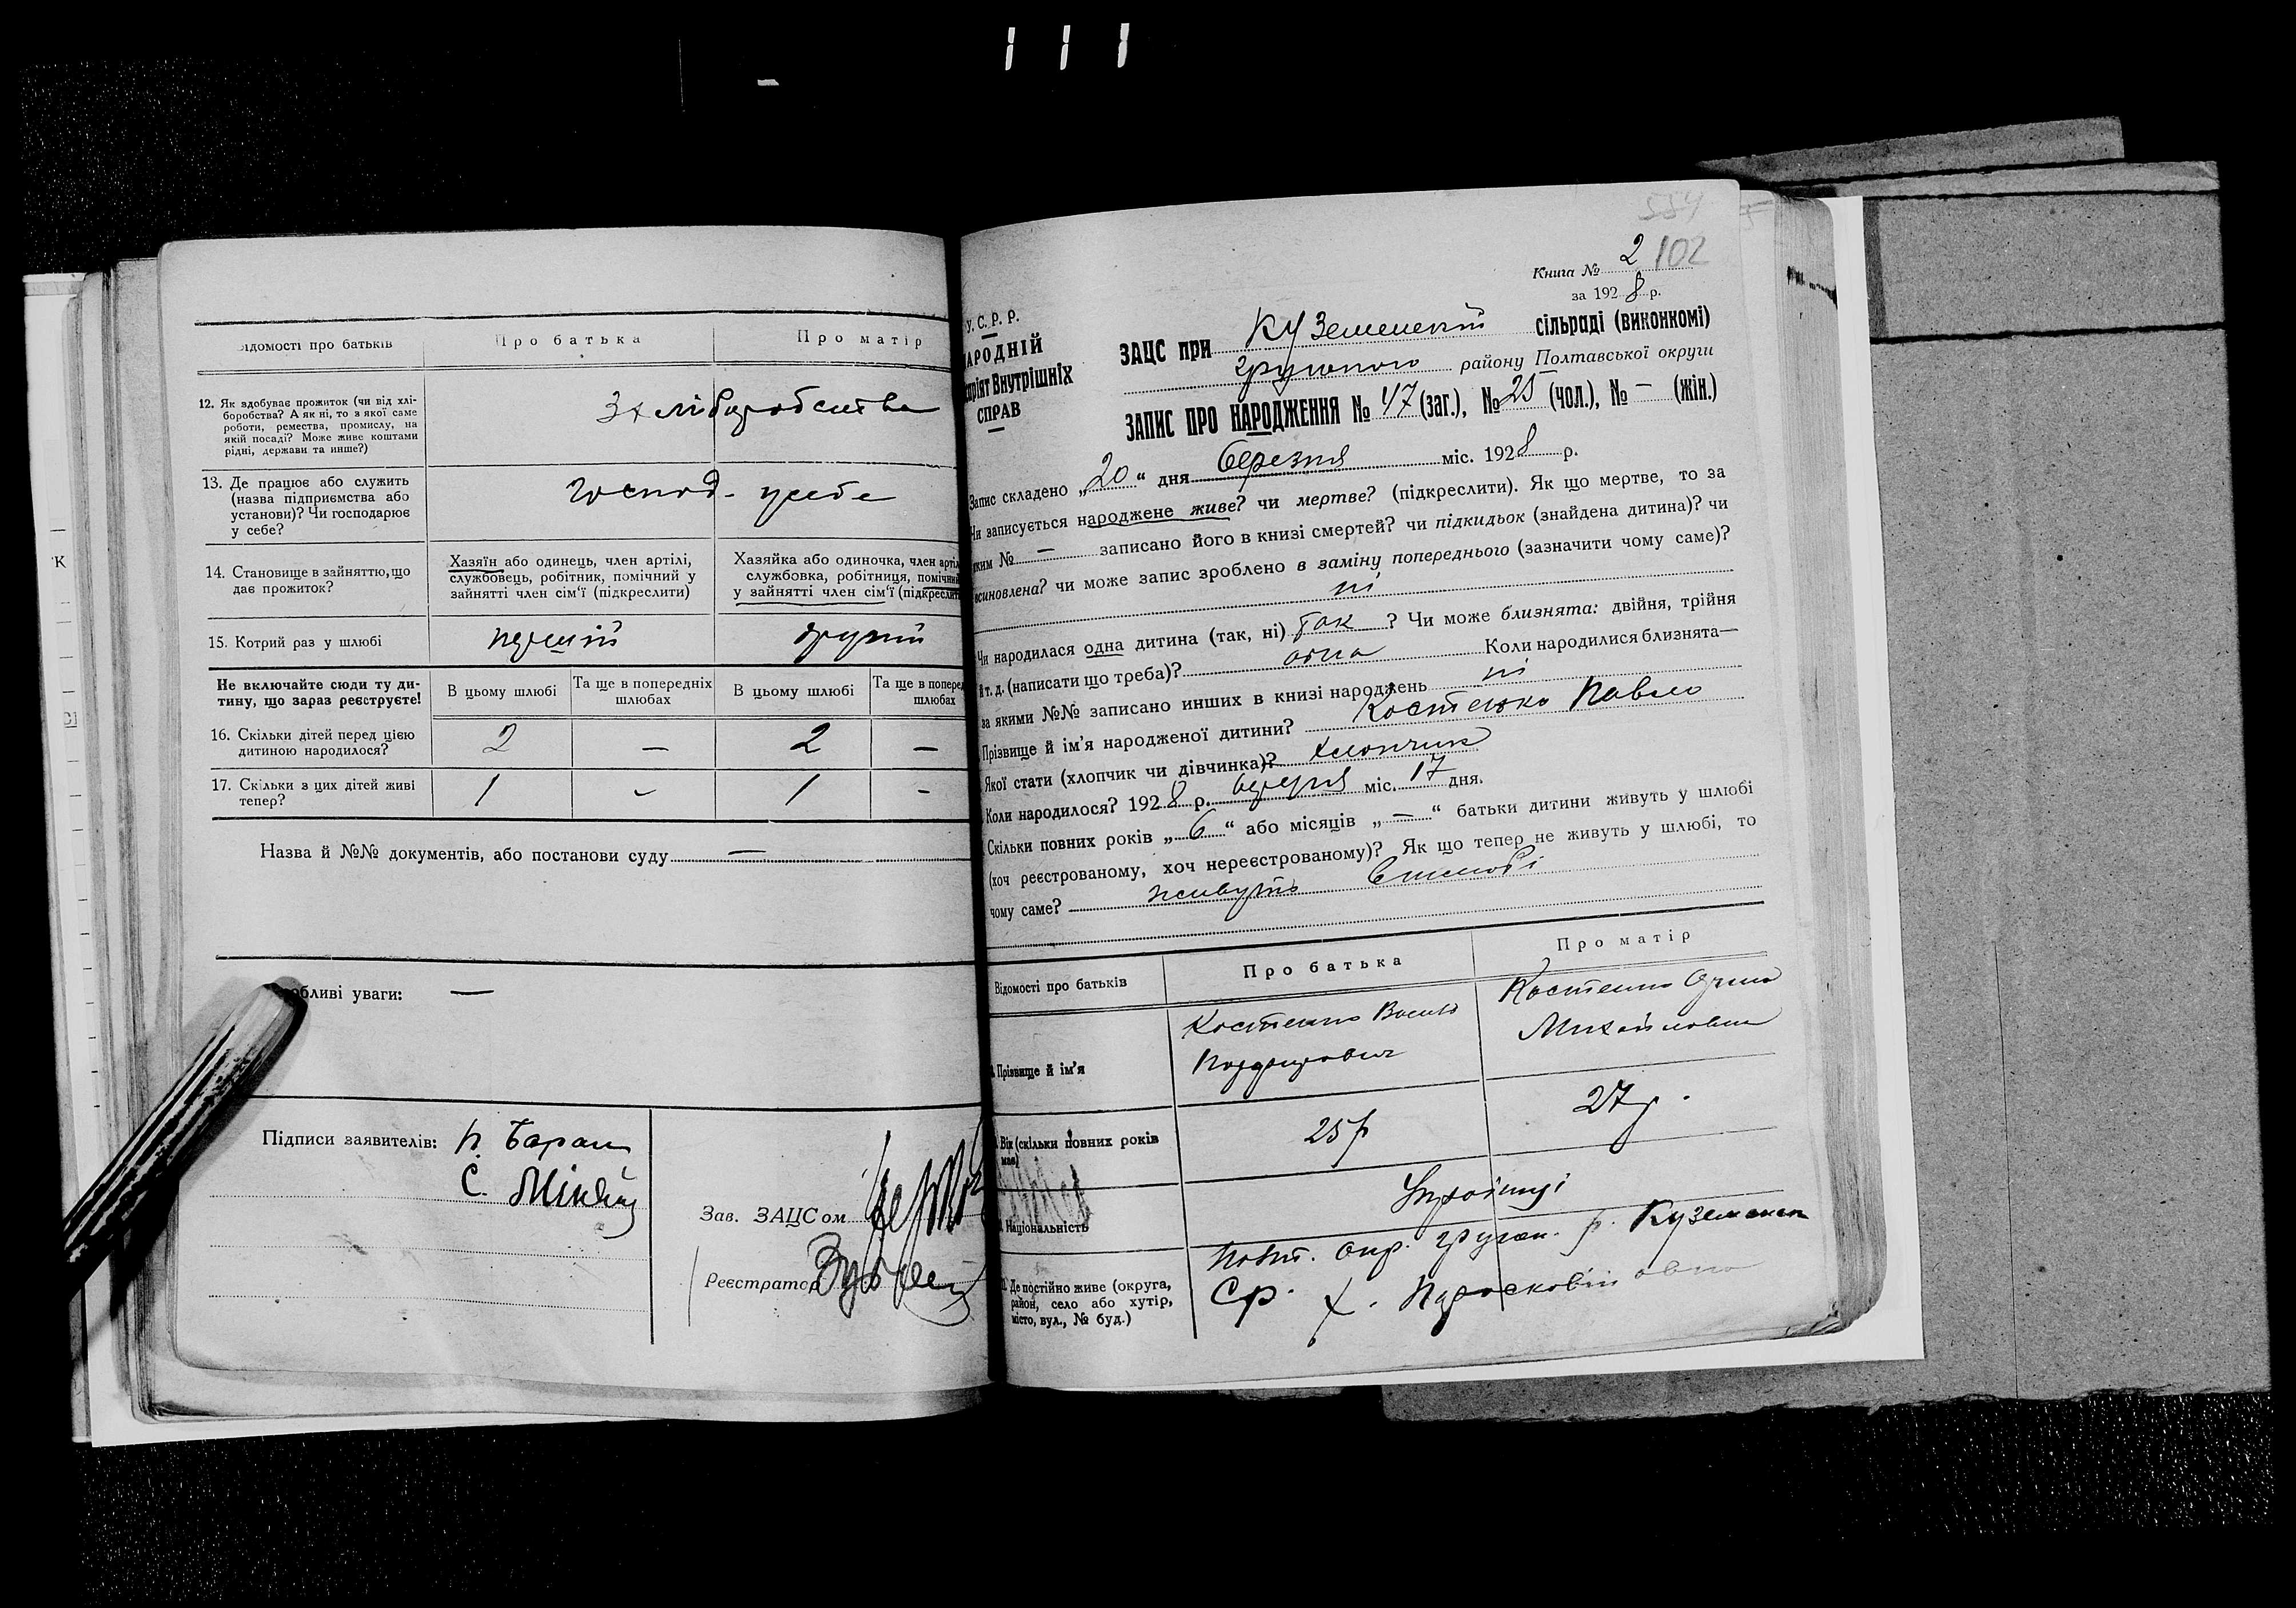 Відомості про батьків
Про батька
Про матір
12. Як здобуває прожиток (чи від хлі-
боробства? А як ні, то з якої саме
роботи, ремества, промислу, на
якій посаді? Може живе коштами
рідні, держави та инше?)
З хліборобства
13. Де працює або служить
(назва підприємства або
установи)? Чи господарює
у себе?
господ. у себе
14. Становище в зайняттю, що
дає прожиток?
Хазяїн або одинець, член артілі,
службовець, робітник, помічний у
зайнятті член сім'ї (підкреслити)
Хазяйка або одиночка, член артіл
службовка, робітниця, помічни
у зайнятті член сім'ї (підкреслит
15. Котрий раз у шлюбі
перший
другий
Не включайте сюди ту ди-
тину, що зараз реєструєте!
В цьому шлюбі
Та ще в попередніх
шлюбах
В цьому шлюбі
Та ще в поперед
шлюбах
16. Скільки дітей перед цією
дитиною народилося?
2 — 2 —
17. Скільки з цих дітей живі
тепер?
1 - 1 -
Назва й №№ документів, або постанови суду —
обливі уваги: —
Підписи заявителів: П. Баран
С.
Зав. ЗАЦСом
Реєстратор
554
Книга № 2 102
за 1928 р.
У. С. Р. Р.
АРОДНІЙ
аріят Внутрішніх
СПРАВ
ЗАЦС при Куземенській сільраді (виконкомі)
району Полтавської округи
ЗАПИС ПРО НАРОДЖЕННЯ № 47 (заг.), № 25 (чол.), № — (жін.)
Запис складено „20“ дня березня міс. 1928 р.
Чи записується народжене живе? чи мертве? (підкреслити). Як що мертве, то за
яким № — записано його в книзі смертей? чи підкидьок (знайдена дитина)? чи
всиновлена? чи може запис зроблено в заміну попереднього (зазначити чому саме)?
ні
Чи народилася одна дитина (так, ні) так ? Чи може близнята: двійня, трійня
й т. д. (написати що треба)? одна Коли народилися близнята—
за якими №№ записано инших в книзі народжень ні
Прізвище й ім'я народженої дитини? Костенко Павло
Якої стати (хлопчик чи дівчинка)? хлопчик
Коли народилося? 1928 р. березня міс. 17 дня.
Скільки повних років „6“ або місяців „—“ батьки дитини живуть у шлюбі
(хоч реєстрованому, хоч нереєстрованому)? Як що тепер не живуть у шлюбі, то
чому саме? живуть в шлюбі
Відомості про батьків
Про батька
Про матір
Прізвище й ім'я
Костенко Василь
Костенко
Михайловна
Вік (скільки повних років
має)
25 р
27 р.
Національність
Українці
Де постійно живе (округа,
район, село або хутір,
місто, вул., № буд.)
Полт. окр. р. Куземенск
ср. х.